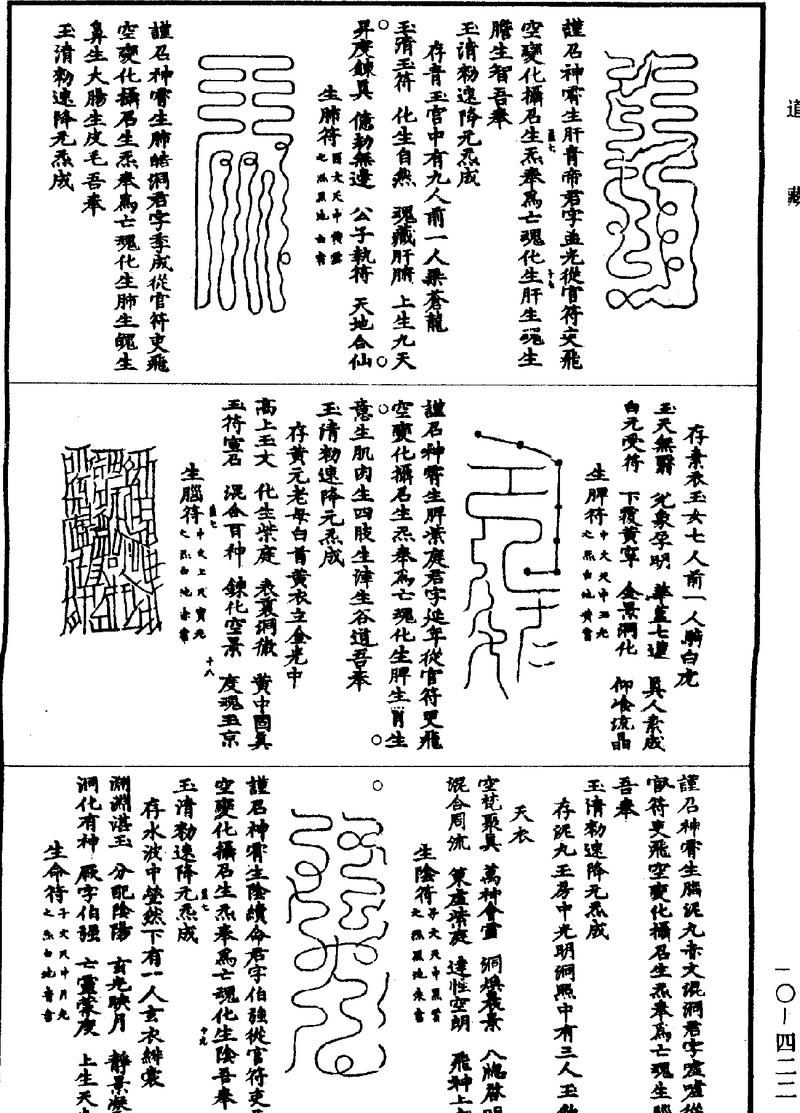 道藏
謹召神霄生肝青帝君字孟光從官符吏飛
空變化攝召生炁奉為亡魂化生肝生魂生
膽生智吾奉
玉清勑速降元炁成
存青玉宮中有九人前一人乘蒼龍
玉清玉符 化生自然 魂藏肝膽 上生九天
昇度鍊真 億劫無邊 公子執符 天地合仙
生肺符
謹召神霄生肺皓洞君字季成從官符吏飛
空變化攝召生炁奉為亡魂化生肺生魄生
鼻生大腸生皮毛吾奉
玉清勑速降元炁成
存素衣玉女七人前一人騎白虎
玉天無翳 兌象孚明 華蓋七蓮 真人素成
白元受符 下覆黃寧 金景洞化 仰飡流晶
生脾符
謹召神霄生脾紫庭君字延年從官符吏飛
空變化攝召生炁奉為亡魂化生脾生胃生
意生肌肉生四肢生津生谷道吾奉
玉清勑速降元炁成
存黃元老母白首黃衣立金光中
高上玉文 化生紫庭 表裏洞徹 黃中固真
玉符宣召 混合百神 鍊化空景 度魂玉京
生腦符
十八
謹召神霄生腦泥丸赤文混洞君字虛虛從
官符吏飛空變化攝召生炁奉為亡魂生腦
吾奉
玉清勑速降元炁成
存泥丸玉房中光明洞照中有三人玉
天衣
空梵聚真 萬神會靈 洞煥表景 八
混合周流 策虛紫庭 達性空朗 飛神上
生陰符
謹召神霄生陰續命君字伯強從官符吏
空變化攝召生炁奉為亡魂化生陰吾奉
玉清勑速降元炁成
十九
存水波中瑩然下有一人玄衣緋裳
淵淵湛玉 分配陰陽 玄光映月 靜景
洞化有神 厥字伯強 亡靈蒙度 上生天
生命符
一〇－四二二